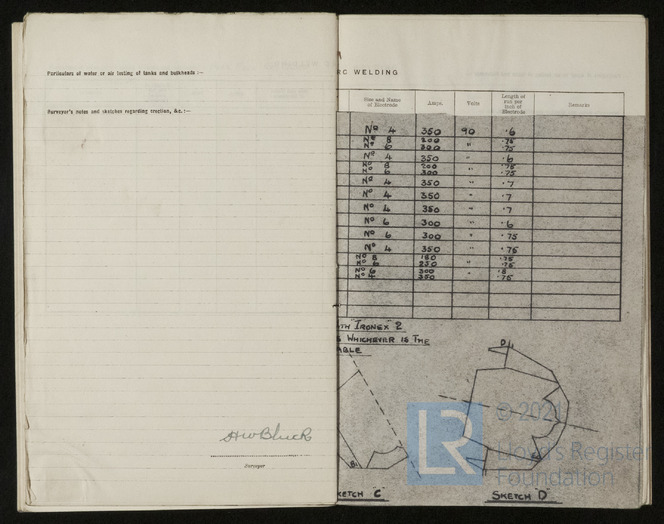 Particulars of water or air testing of tanks and bulkheads :—
Surveyor's notes and sketches regarding erection, &c. :—
H W Bluck
Surveyor
RC WELDING
Size and Name of Electrode
Amps.
Volts
Length of run per inch of Electrode
Remarks
No 4 350 90 .6
No 8 200 " .75
No 6 300 .75
No 4 350 " .6
No 8 200 " .75
No 6 300 " .75
No 4 350 " .7
No 4 350 " .7
No 4 350 " .7
No 6 300 " .6
No 6 300 " .75
No 4 350 " .75
No 8 180 .75
No 6 250 " .75
No 6 300 " .8
No 4 350 .75
TH "IRONEX" 2
WHICHEVER IS THE
ABLE
D
B
C
KETCH "C"
SKETCH "D"
LR
© 202
Lloyd's Register
Foundation